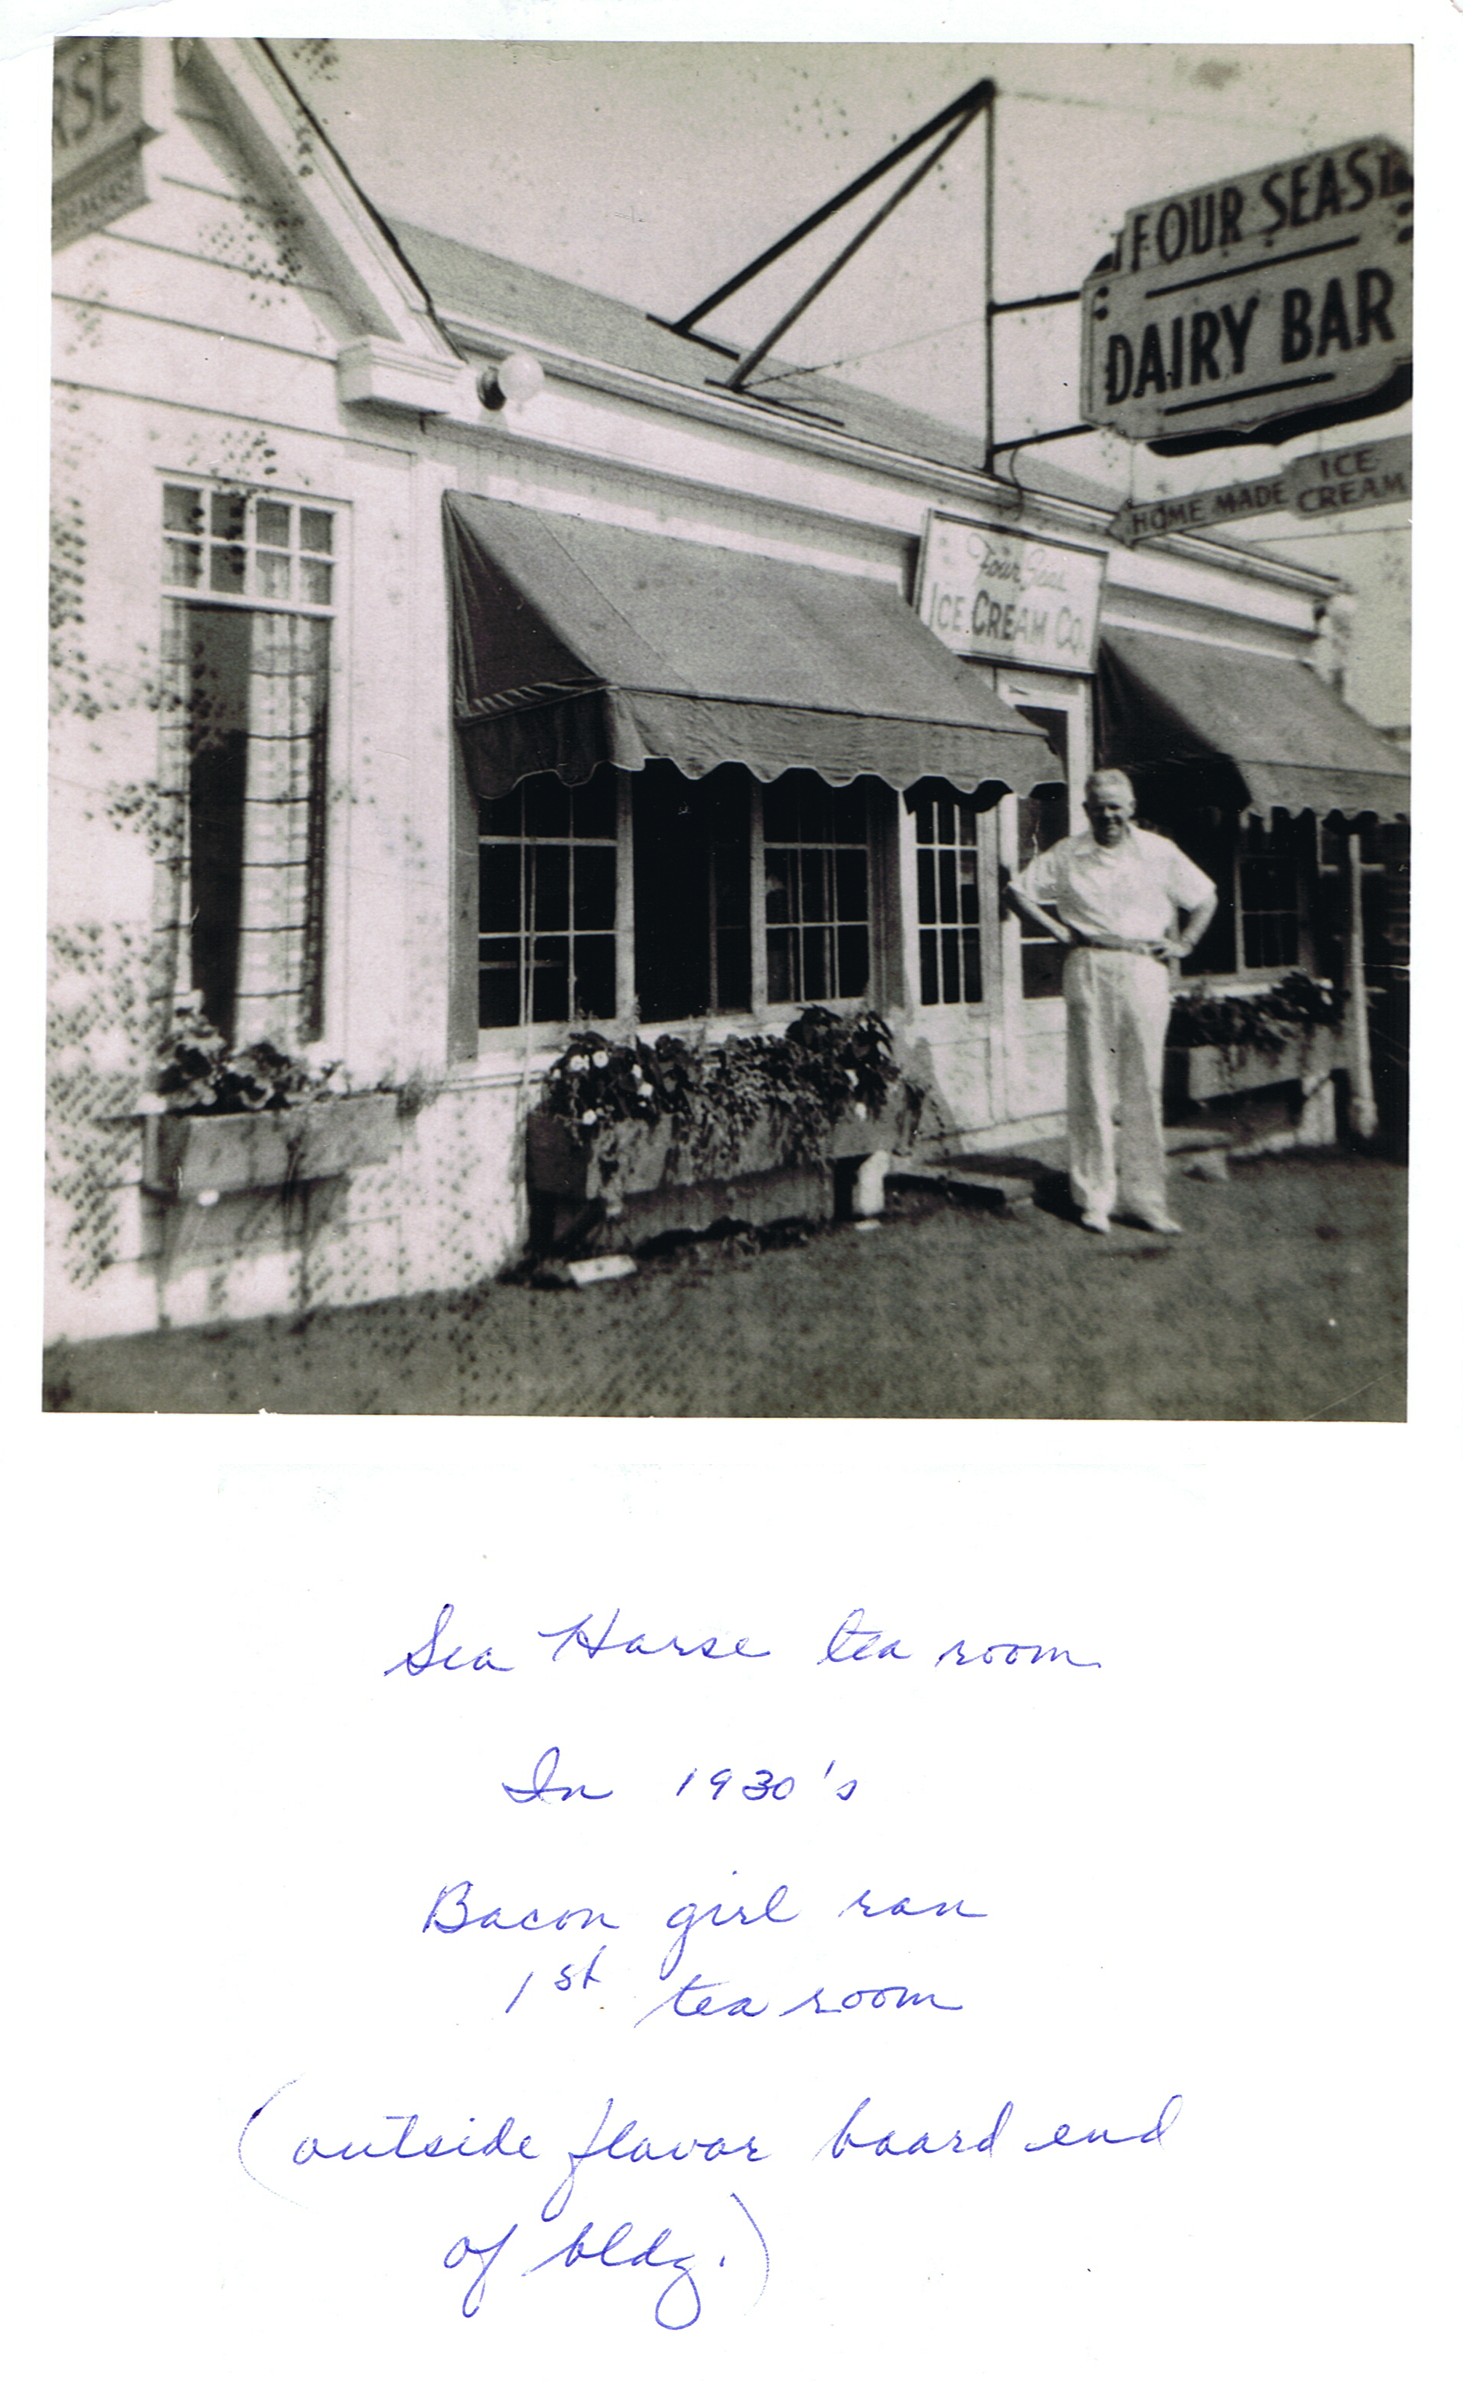 RSE
BREAKFAST
FOUR SEAS
DAIRY BAR
HOME MADE ICE CREAM
Four Seas
ICE CREAM CO.
Sea Horse tea room
In 1930's
Bacon girl ran
1st tea room
(outside flavor board end
of bldg.)